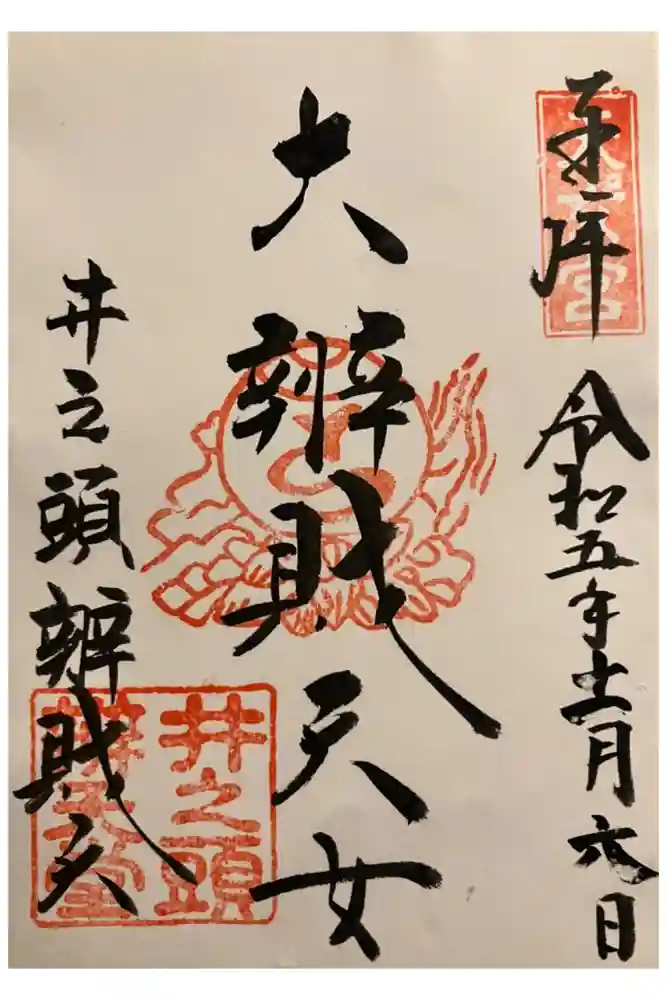 奉拝
令和五年十一月六日
大辨財天女
井之頭辨財天
井之頭
辨天堂